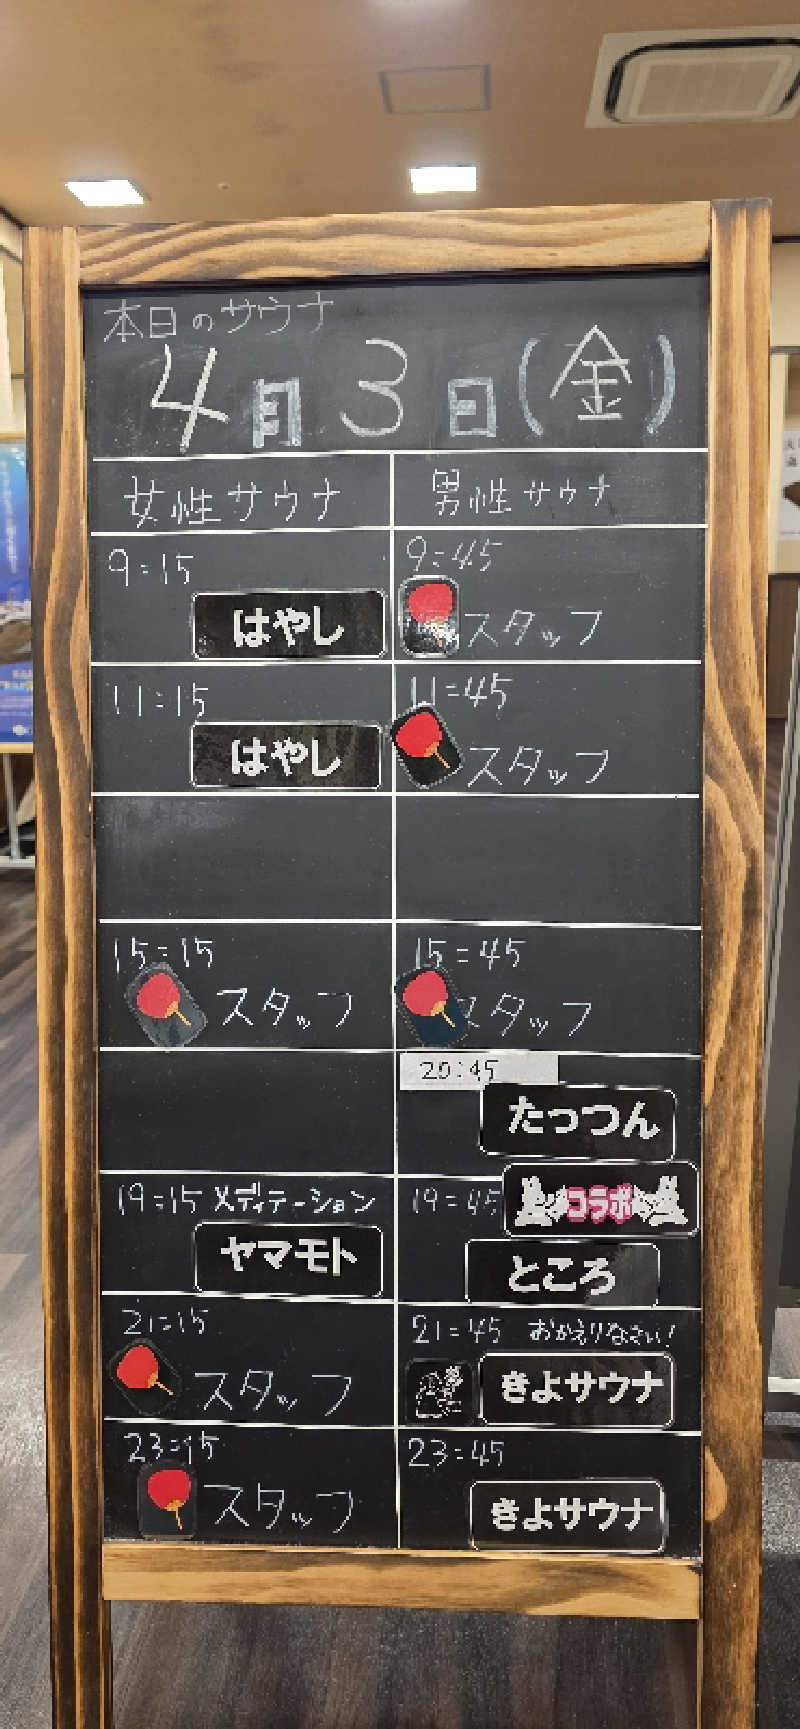 本日のサウナ
4月3日(金)
女性サウナ 男性サウナ
9:15 9:45
はやし スタッフ
11:15 11:45
はやし スタッフ
15:15 15:45
スタッフ スタッフ
20:45
たっつん
19:15 メディテーション 19:45 コラボ
ヤマモト ところ
21:15 21:45 おかえりなさい!
スタッフ きよサウナ
23:15 23:45
スタッフ きよサウナ